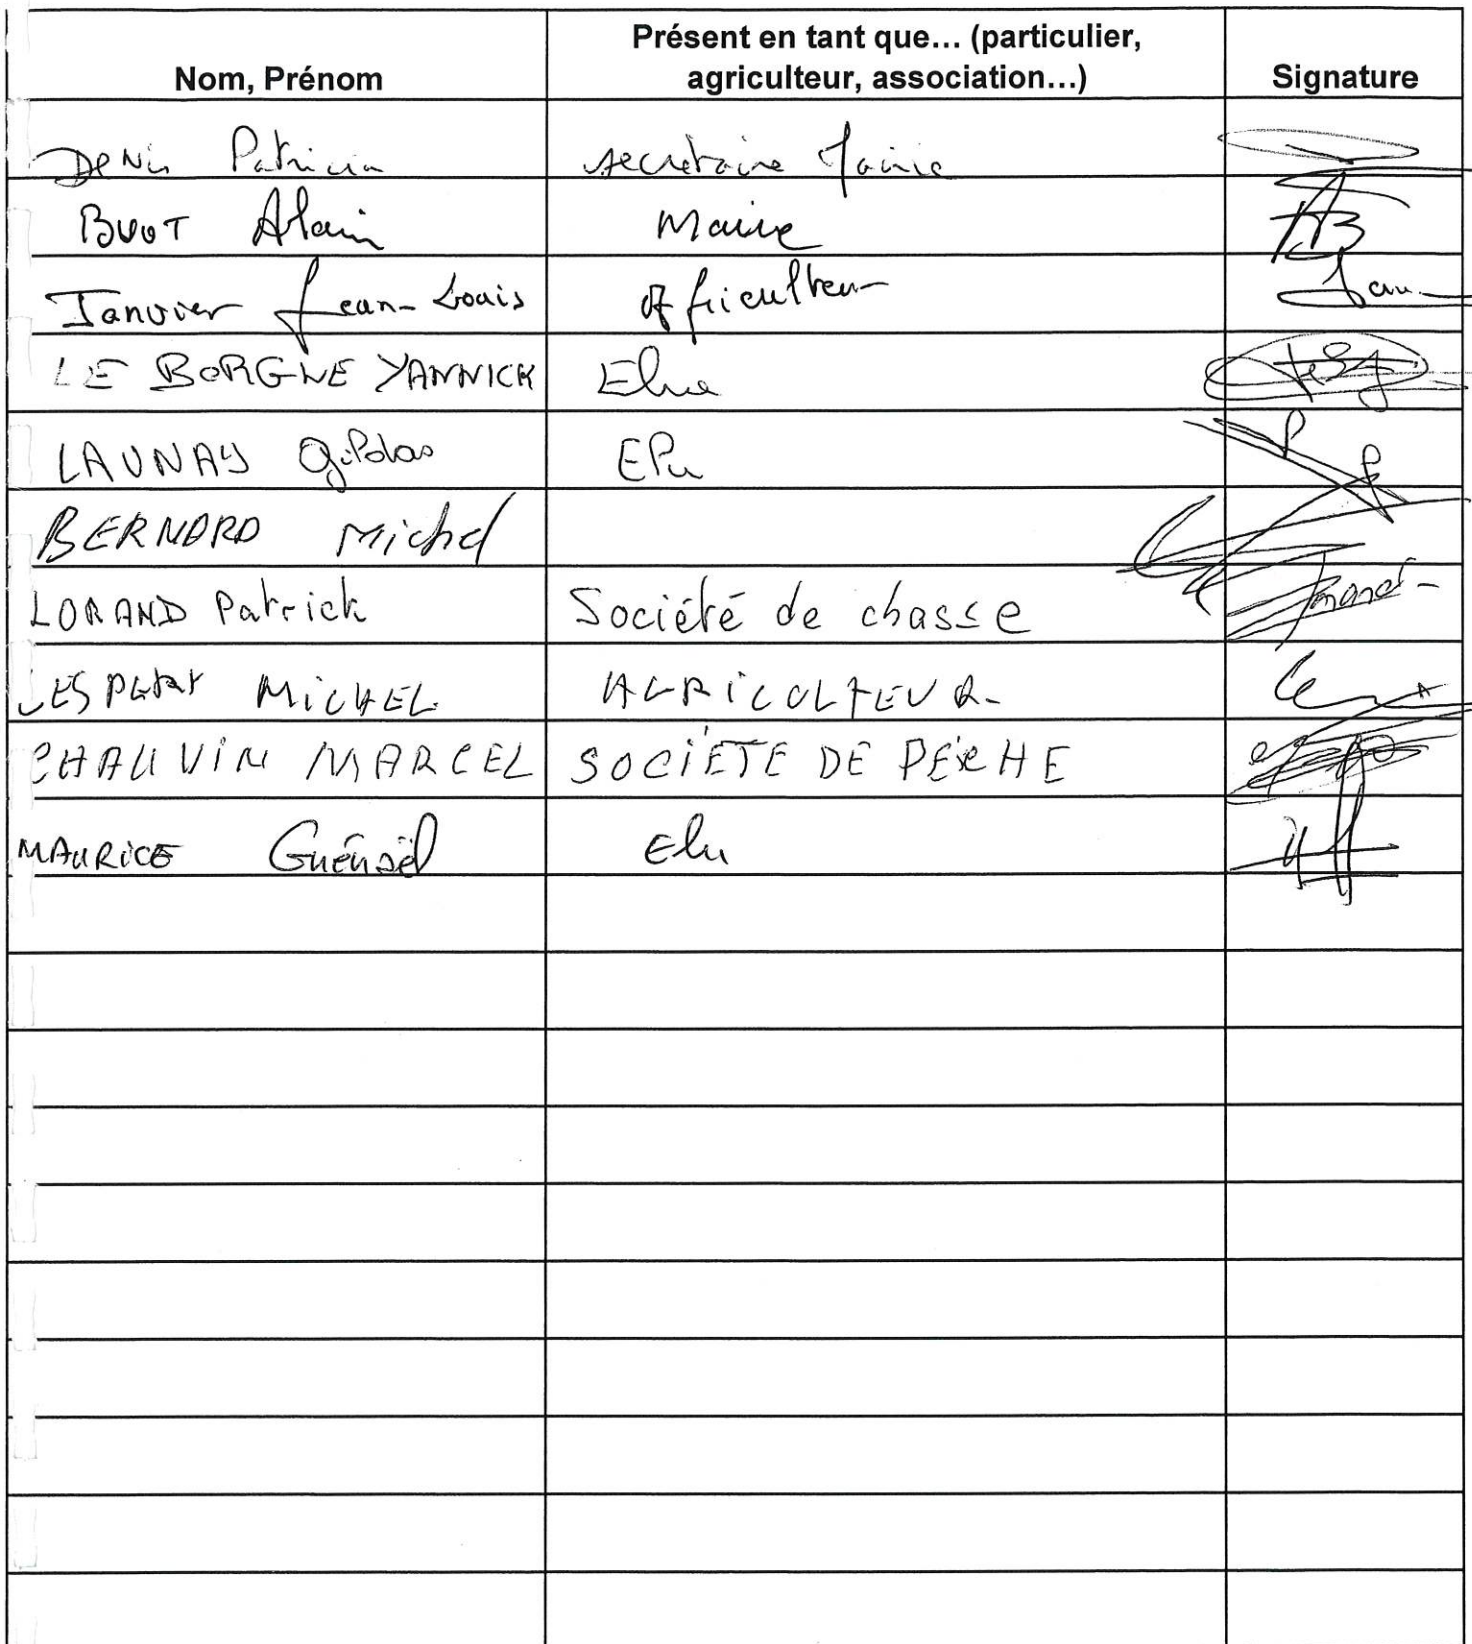 Nom, Prénom
Présent en tant que... (particulier,
agriculteur, association...)
Signature
Denis Patricia secrétaire Mairie
BUOT Alain Maire
Janvier Jean-Louis Agriculteur
LE BORGNE YANNICK Elue
LAUNAY Gildas Elu
BERNARD Michel
LORAND Patrick Société de chasse
MICHEL AGRICULTEUR
CHAUVIN MARCEL SOCIÉTE DE PÊCHE
MAURICE Guénaël Elu